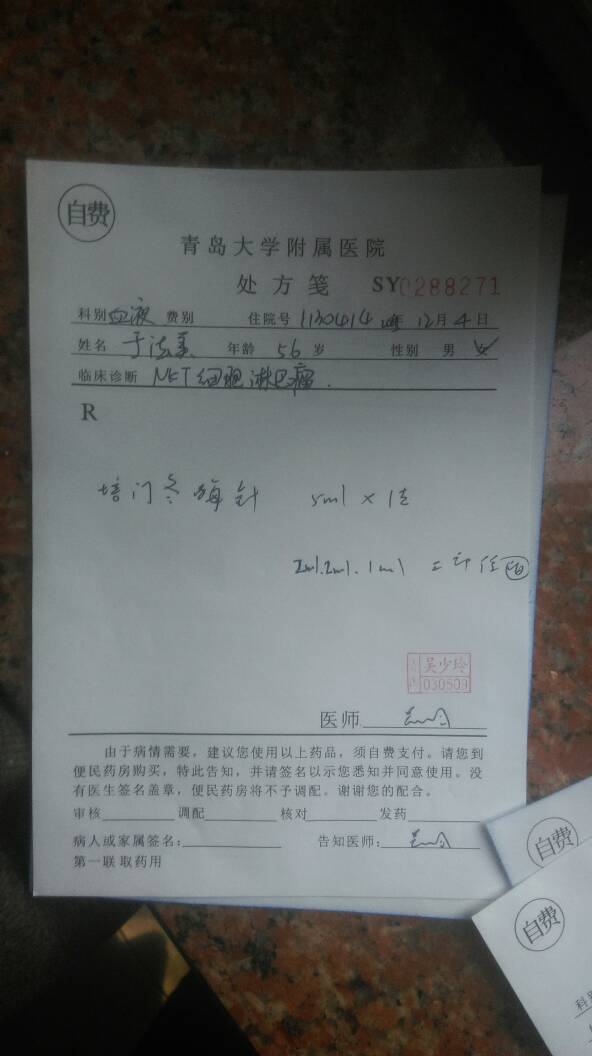 自费
青岛大学附属医院
处方笺 SY0288271
科别 血液 费别 住院号 1130414 年 12月4日
姓名 于法美 年龄 56 岁 性别 男 女
临床诊断 NKT细胞淋巴瘤.
R
培门冬酶针 5ml × 1支
2ml.2ml.1ml 三部位
吴少玲
030509
医师
由于病情需要，建议您使用以上药品，须自费支付。请您到
便民药房购买，特此告知，并请签名以示您悉知并同意使用。没
有医生签名盖章，便民药房将不予调配。谢谢您的配合。
审核 调配 核对 发药
病人或家属签名： 告知医师：
第一联 取药用
自费
自费
科别